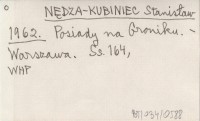 NĘDZA-KUBINIEC Stanisław
1962. Posiady na Groniku. -
Warszawa. Ss. 164,
WHP
BIT/034/0588